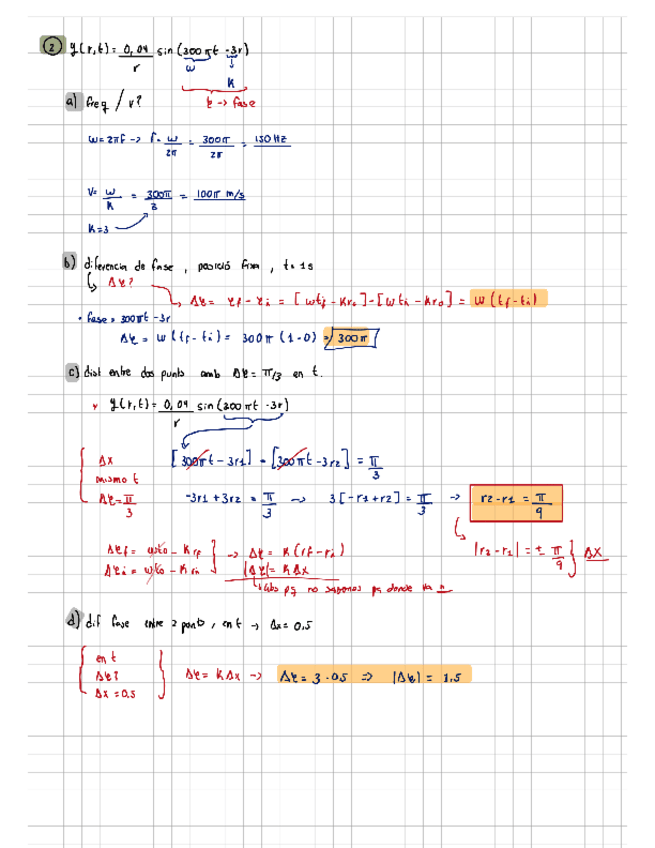 2 y(r,t) = 0,04/r sin (300πt - 3r)
ω
K
φ -> fase
a) freq / v?
ω = 2πf -> f = ω/2π = 300π/2π = 150 Hz
V = ω/K = 300π/3 = 100π m/s
K = 3
b) diferencia de fase, posició fixa, t = 1s
Δφ?
Δφ = φf - φi = [ωtf - Kr₀] - [ωti - Kr₀] = ω(tf - ti)
• fase = 300πt - 3r
Δφ = ω(tf - ti) = 300π (1 - 0) = 300π
c) dist entre dos punts amb Δφ = π/3 en t.
y(r,t) = 0,04/r sin (300πt - 3r)
Δx [300πt - 3r1] - [300πt - 3r2] = π/3
mismo t
Δφ = π/3 -3r1 + 3r2 = π/3 ~> 3[-r1 + r2] = π/3 -> r2 - r1 = π/9
Δφf = ωt₀ - Krf -> Δφ = K(rf - ri) |r2 - r1| = ± π/9 } Δx
Δφi = ωt₀ - Kri |Δφ| = KΔx
pq no sabemos pa donde va
d) dif fase entre 2 punts, en t -> Δx = 0,5
en t
Δφ? Δφ = KΔx -> Δφ = 3 · 0.5 => |Δφ| = 1,5
Δx = 0.5